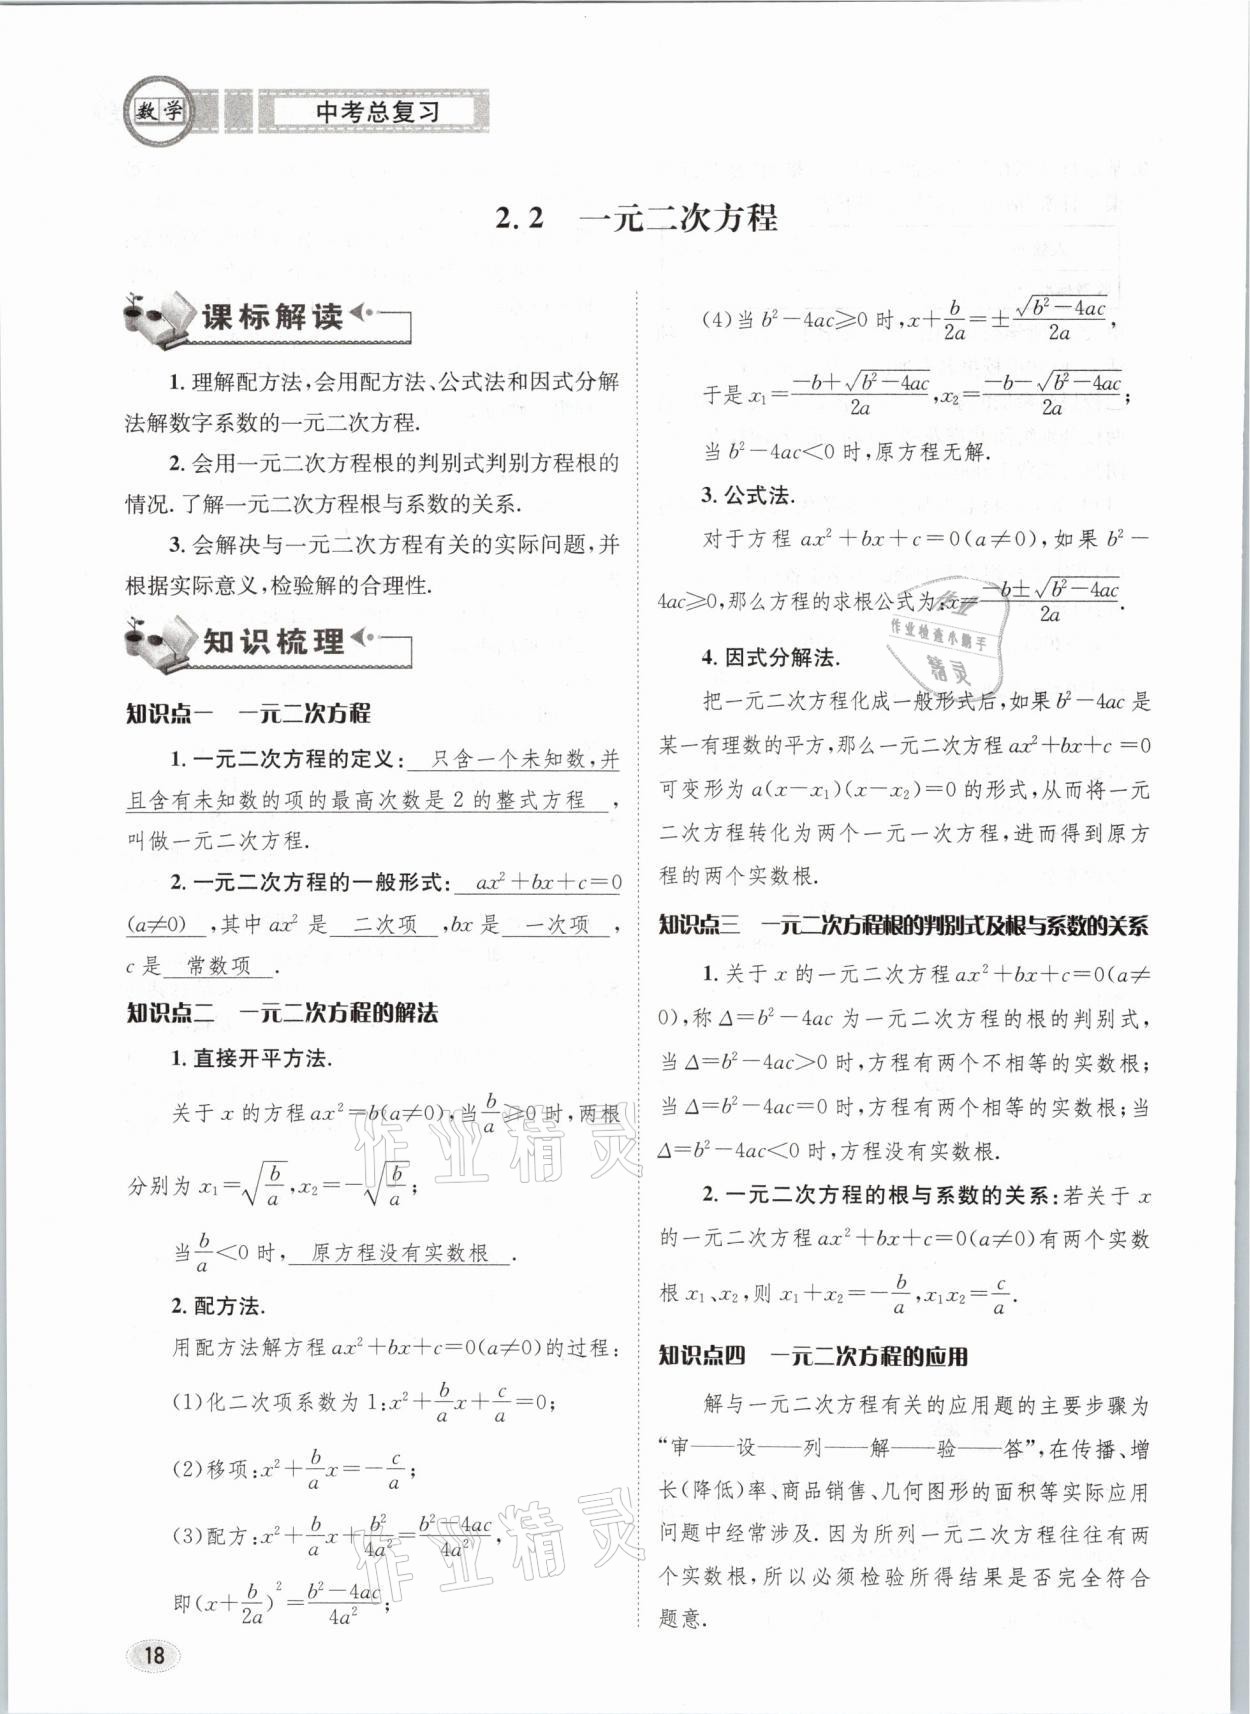 数学
中考总复习
2.2 一元二次方程
课标解读
1. 理解配方法,会用配方法、公式法和因式分解
法解数字系数的一元二次方程.
2. 会用一元二次方程根的判别式判别方程根的
情况. 了解一元二次方程根与系数的关系.
3. 会解决与一元二次方程有关的实际问题,并
根据实际意义,检验解的合理性.
知识梳理
知识点一 一元二次方程
1. 一元二次方程的定义: 只含一个未知数,并
且含有未知数的项的最高次数是 2 的整式方程 ,
叫做一元二次方程.
2. 一元二次方程的一般形式: ax²+bx+c=0
(a≠0) ,其中 ax² 是 二次项 ,bx 是 一次项 ,
c 是 常数项 .
知识点二 一元二次方程的解法
1. 直接开平方法.
关于 x 的方程 ax²=b(a≠0),当 b/a ≥0 时,两根
分别为 x₁=√(b/a),x₂=-√(b/a);
当 b/a <0 时, 原方程没有实数根 .
2. 配方法.
用配方法解方程 ax²+bx+c=0(a≠0)的过程:
(1)化二次项系数为 1:x²+b/a x+c/a=0;
(2)移项:x²+b/a x=-c/a;
(3)配方:x²+b/a x+b²/4a²=(b²-4ac)/4a²,
即(x+b/2a)²=(b²-4ac)/4a²;
(4)当 b²-4ac≥0 时,x+b/2a=±√(b²-4ac)/2a,
于是 x₁=(-b+√(b²-4ac))/2a,x₂=(-b-√(b²-4ac))/2a;
当 b²-4ac<0 时,原方程无解.
3. 公式法.
对于方程 ax²+bx+c=0(a≠0),如果 b²-
4ac≥0,那么方程的求根公式为:x=(-b±√(b²-4ac))/2a.
4. 因式分解法.
把一元二次方程化成一般形式后,如果 b²-4ac 是
某一有理数的平方,那么一元二次方程 ax²+bx+c=0
可变形为 a(x-x₁)(x-x₂)=0 的形式,从而将一元
二次方程转化为两个一元一次方程,进而得到原方
程的两个实数根.
知识点三 一元二次方程根的判别式及根与系数的关系
1. 关于 x 的一元二次方程 ax²+bx+c=0(a≠
0),称 Δ=b²-4ac 为一元二次方程的根的判别式,
当 Δ=b²-4ac>0 时,方程有两个不相等的实数根;
当 Δ=b²-4ac=0 时,方程有两个相等的实数根;当
Δ=b²-4ac<0 时,方程没有实数根.
2. 一元二次方程的根与系数的关系:若关于 x
的一元二次方程 ax²+bx+c=0(a≠0)有两个实数
根 x₁、x₂,则 x₁+x₂=-b/a,x₁x₂=c/a.
知识点四 一元二次方程的应用
解与一元二次方程有关的应用题的主要步骤为
“审——设——列——解——验——答”,在传播、增
长(降低)率、商品销售、几何图形的面积等实际应用
问题中经常涉及. 因为所列一元二次方程往往有两
个实数根,所以必须检验所得结果是否完全符合
题意.
18
作业精灵
作业精灵
作业
作业检查小助手
精灵